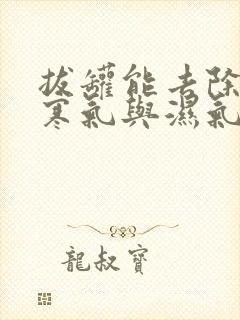 拔罐能去除
寒氣與濕氣
龍叔寶